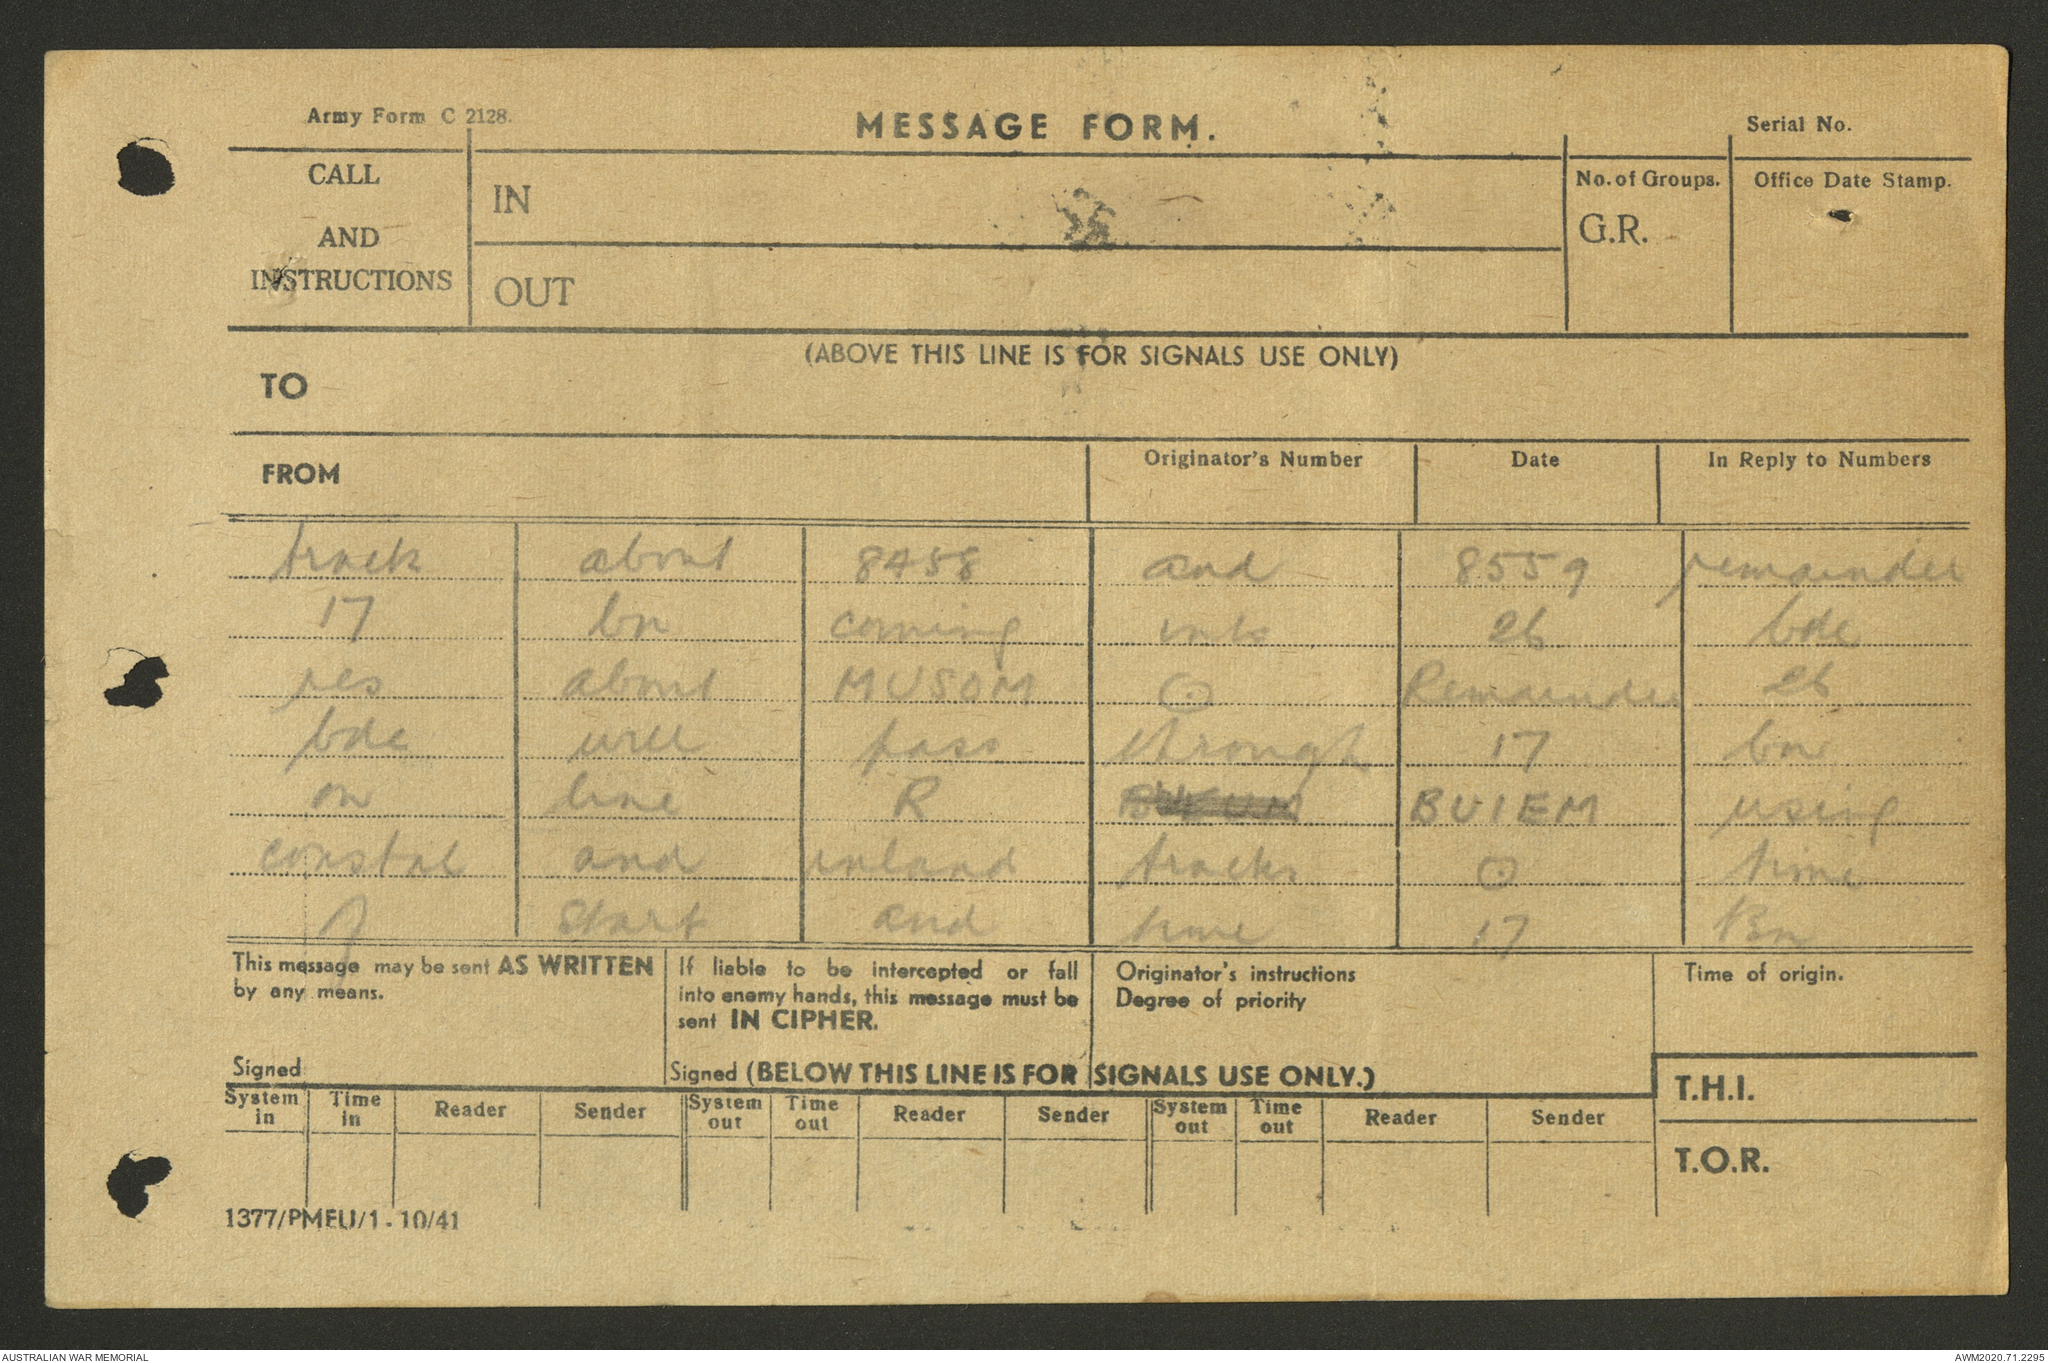 Army Form C 2128.
MESSAGE FORM.
Serial No.
CALL
AND
INSTRUCTIONS
IN
OUT
No. of Groups.
G.R.
Office Date Stamp.
(ABOVE THIS LINE IS FOR SIGNALS USE ONLY)
TO
FROM
Originator's Number
Date
In Reply to Numbers
track about 8458 and 8559 remainder
17 bn coming into 26 bde
res about MUSOM ⊙ Remainder 26
bde will pass through 17 bn
on line R BUIEM using
coastal and inland tracks ⊙ time
of start and time 17 Bn
This message may be sent AS WRITTEN
by any means.
Signed
If liable to be intercepted or fall
into enemy hands, this message must be
sent IN CIPHER.
Signed (BELOW THIS LINE IS FOR SIGNALS USE ONLY.)
Originator's instructions
Degree of priority
Time of origin.
T.H.I.
T.O.R.
System in Time in Reader Sender System out Time out Reader Sender System out Time out Reader Sender
1377/PMEU/1-10/41
AUSTRALIAN WAR MEMORIAL
AWM2020.71.2295